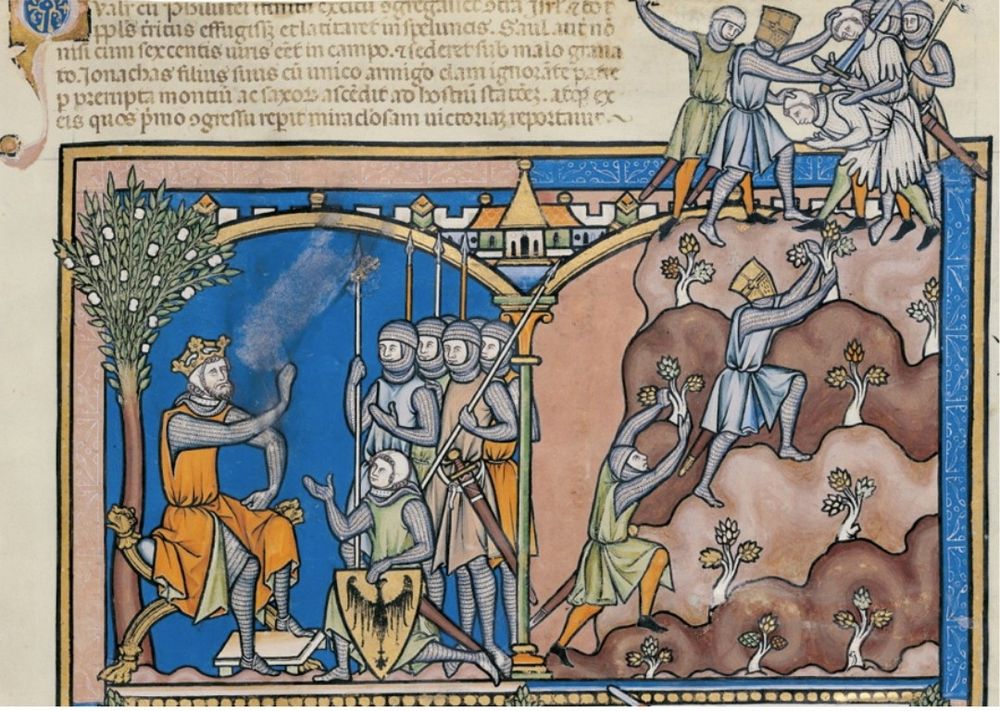 cū philistei exercitū ꝯgregassēt ꝯtra isrl̄. &
ppl̄s effugisset et latitaret in speluncis. Saul aut̄ nō
nisi cum sexcentis uiris eēt in campo. & sederet sub malo grana
to. Jonathas filius suus cū unico armigō clam ignorāte patre
ꝑ prerupta montiū ac saxoꝝ ascēdit ad hostiū statiōeꝫ. atqꝫ ex
eis quos p̄mo ꝯgressu repit miraclosam uictoriaꝫ reportauit